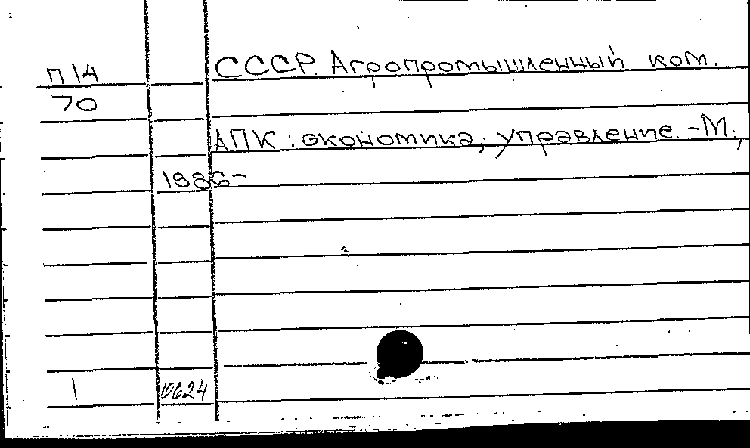 П 14 СССР. Агропромышленный ком.
70
АПК : экономика, управление. - М.,
1986-
1